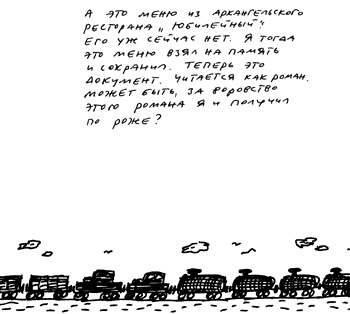 А ЭТО МЕНЮ ИЗ АРХАНГЕЛЬСКОГО
РЕСТОРАНА „ЮБИЛЕЙНЫЙ“.
ЕГО УЖЕ СЕЙЧАС НЕТ. Я ТОГДА
ЭТО МЕНЮ ВЗЯЛ НА ПАМЯТЬ
И СОХРАНИЛ. ТЕПЕРЬ ЭТО
ДОКУМЕНТ. ЧИТАЕТСЯ КАК РОМАН.
МОЖЕТ БЫТЬ, ЗА ВОРОВСТВО
ЭТОГО РОМАНА Я И ПОЛУЧИЛ
ПО РОЖЕ?